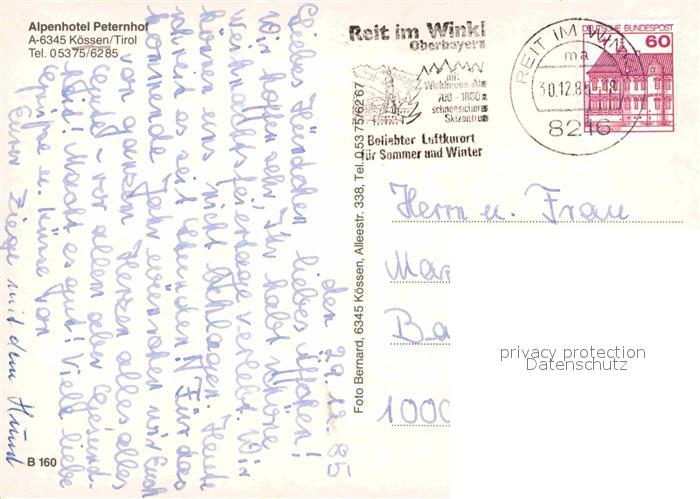 Alpenhotel Peternhof
A-6345 Kössen/Tirol
Tel. 05375/6285
Reit im Winkl
Oberbayern
mit
Winklmoos-Alm
700 - 1800 m
schneesicheres
Skizentrum
Beliebter Luftkurort
für Sommer und Winter
REIT IM WINKL
ma
30.12.85-18
8216
DEUTSCHE BUNDESPOST
60
den 29.12.85
Liebes Hündchen, liebes Äffchen!
Wir hoffen sehr, Ihr habt schöne
Weihnachtsfeiertage verlebt. Wir
können nicht klagen. Heute
seit Für das
kommende Jahr wünschen wir Euch
von ganzem Herzen alles, alles
Gute - vor allem aber Gesund-
Macht es gut! Viele liebe
Grüße u. Küsse von
Eurer Ziege mit dem Hund
Foto Bernard, 6345 Kössen, Alleestr. 338, Tel. 05375/6267
Herrn u. Frau
Mar
Ba
1000
privacy protection
Datenschutz
B 160